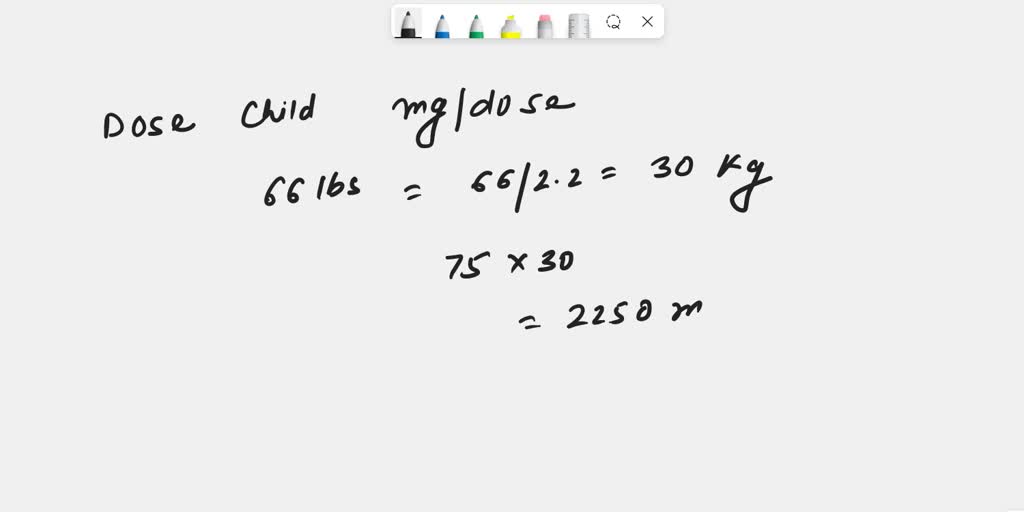 Dose Child mg/dose
66 lbs = 66/2.2 = 30 Kg
75 × 30
= 2250 m